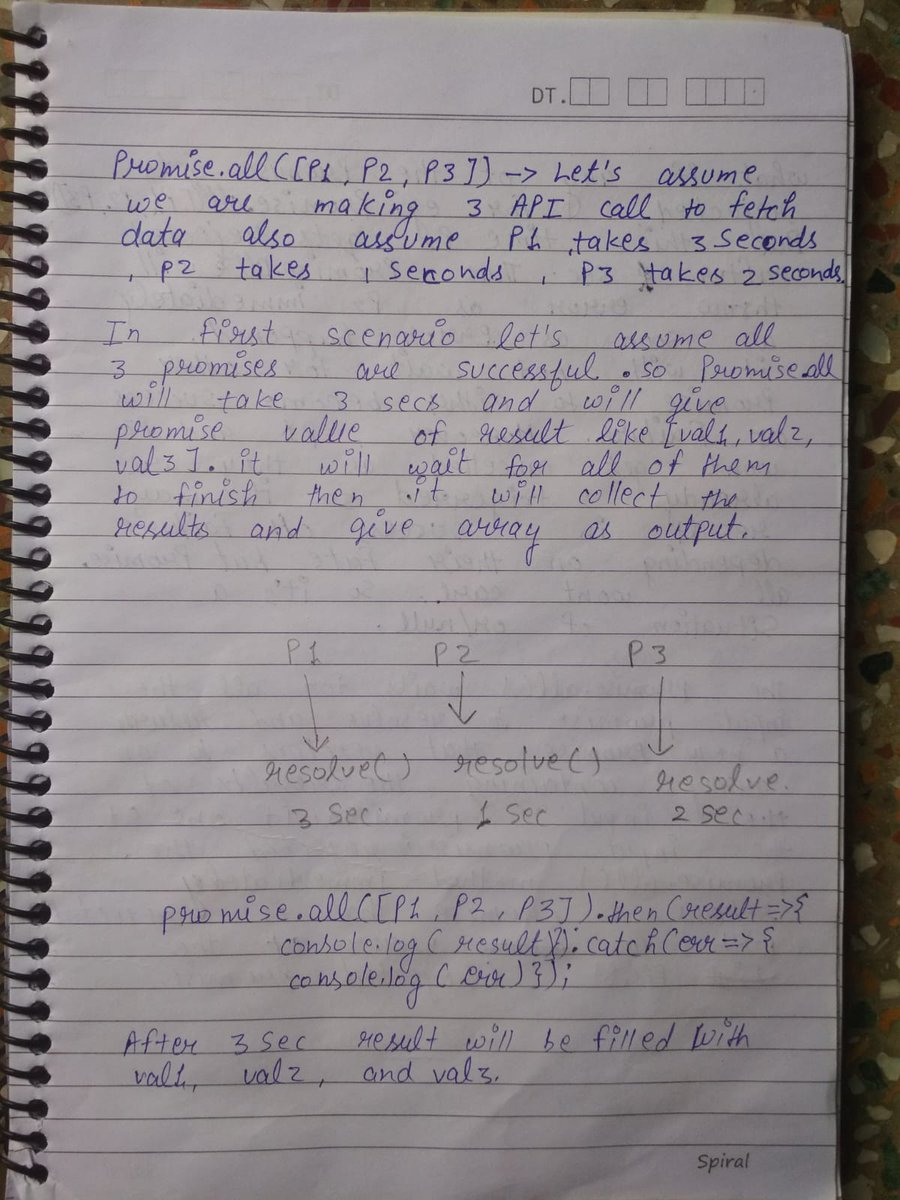 DT.
Promise.all([P1, P2, P3]) -> Let's assume
we are making 3 API call to fetch
data also assume P1 takes 3 Seconds
, P2 takes 1 seconds, P3 takes 2 seconds.
In first scenario let's assume all
3 promises are successful. so Promise.all
will take 3 secs and will give
promise value of result like [val1, val2,
val3]. it will wait for all of them
to finish then it will collect the
results and give array as output.
P1 P2 P3
resolve() resolve() resolve.
3 Sec 1 Sec 2 sec.
promise.all([P1, P2, P3]).then(result=>{
console.log(result)}).catch(err=>{
console.log(err)});
After 3 Sec result will be filled with
val1, val2, and val3.
Spiral